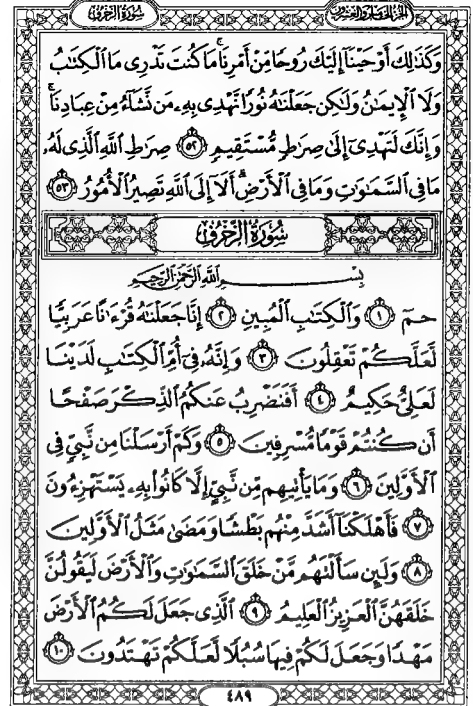 الجزء الخامس والعشرون سورة الزخرف
وَكَذَٰلِكَ أَوْحَيْنَآ إِلَيْكَ رُوحًا مِّنْ أَمْرِنَا ۚ مَا كُنتَ تَدْرِى مَا ٱلْكِتَٰبُ
وَلَا ٱلْإِيمَٰنُ وَلَٰكِن جَعَلْنَٰهُ نُورًا نَّهْدِى بِهِۦ مَن نَّشَآءُ مِنْ عِبَادِنَا ۚ
وَإِنَّكَ لَتَهْدِىٓ إِلَىٰ صِرَٰطٍ مُّسْتَقِيمٍ ٥٢ صِرَٰطِ ٱللَّهِ ٱلَّذِى لَهُۥ
مَا فِى ٱلسَّمَٰوَٰتِ وَمَا فِى ٱلْأَرْضِ ۗ أَلَآ إِلَى ٱللَّهِ تَصِيرُ ٱلْأُمُورُ ٥٣
سُورَةُ الزُّخْرُفِ
بِسْمِ ٱللَّهِ ٱلرَّحْمَٰنِ ٱلرَّحِيمِ
حمٓ ١ وَٱلْكِتَٰبِ ٱلْمُبِينِ ٢ إِنَّا جَعَلْنَٰهُ قُرْءَٰنًا عَرَبِيًّا
لَّعَلَّكُمْ تَعْقِلُونَ ٣ وَإِنَّهُۥ فِىٓ أُمِّ ٱلْكِتَٰبِ لَدَيْنَا
لَعَلِىٌّ حَكِيمٌ ٤ أَفَنَضْرِبُ عَنكُمُ ٱلذِّكْرَ صَفْحًا
أَن كُنتُمْ قَوْمًا مُّسْرِفِينَ ٥ وَكَمْ أَرْسَلْنَا مِن نَّبِىٍّ فِى
ٱلْأَوَّلِينَ ٦ وَمَا يَأْتِيهِم مِّن نَّبِىٍّ إِلَّا كَانُوا۟ بِهِۦ يَسْتَهْزِءُونَ
٧ فَأَهْلَكْنَآ أَشَدَّ مِنْهُم بَطْشًا وَمَضَىٰ مَثَلُ ٱلْأَوَّلِينَ
٨ وَلَئِن سَأَلْتَهُم مَّنْ خَلَقَ ٱلسَّمَٰوَٰتِ وَٱلْأَرْضَ لَيَقُولُنَّ
خَلَقَهُنَّ ٱلْعَزِيزُ ٱلْعَلِيمُ ٩ ٱلَّذِى جَعَلَ لَكُمُ ٱلْأَرْضَ
مَهْدًا وَجَعَلَ لَكُمْ فِيهَا سُبُلًا لَّعَلَّكُمْ تَهْتَدُونَ ١٠
٤٨٩